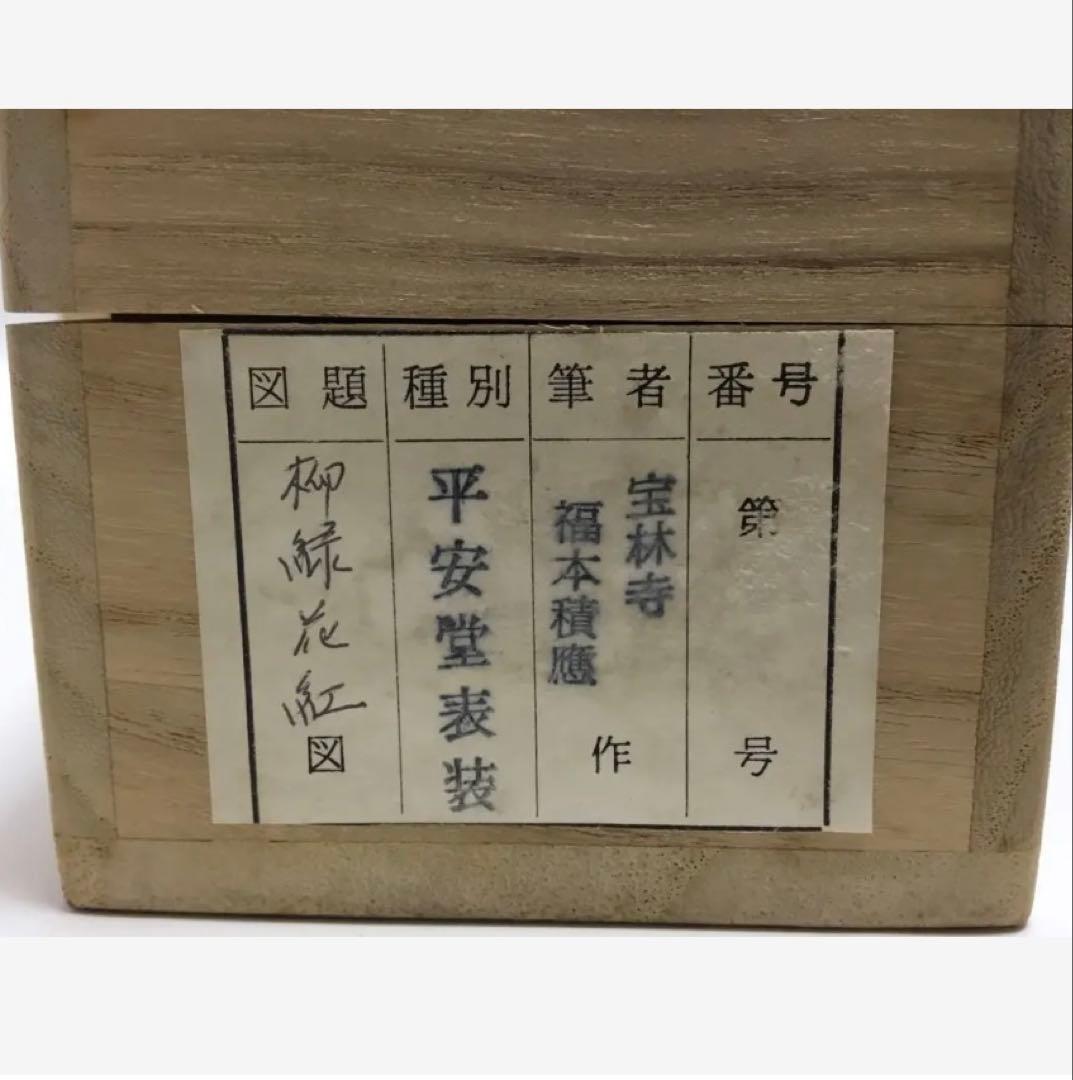 番号
第
号
筆者
宝林寺
福本積應
作
種別
平安堂表装
図題
柳緑花紅
図